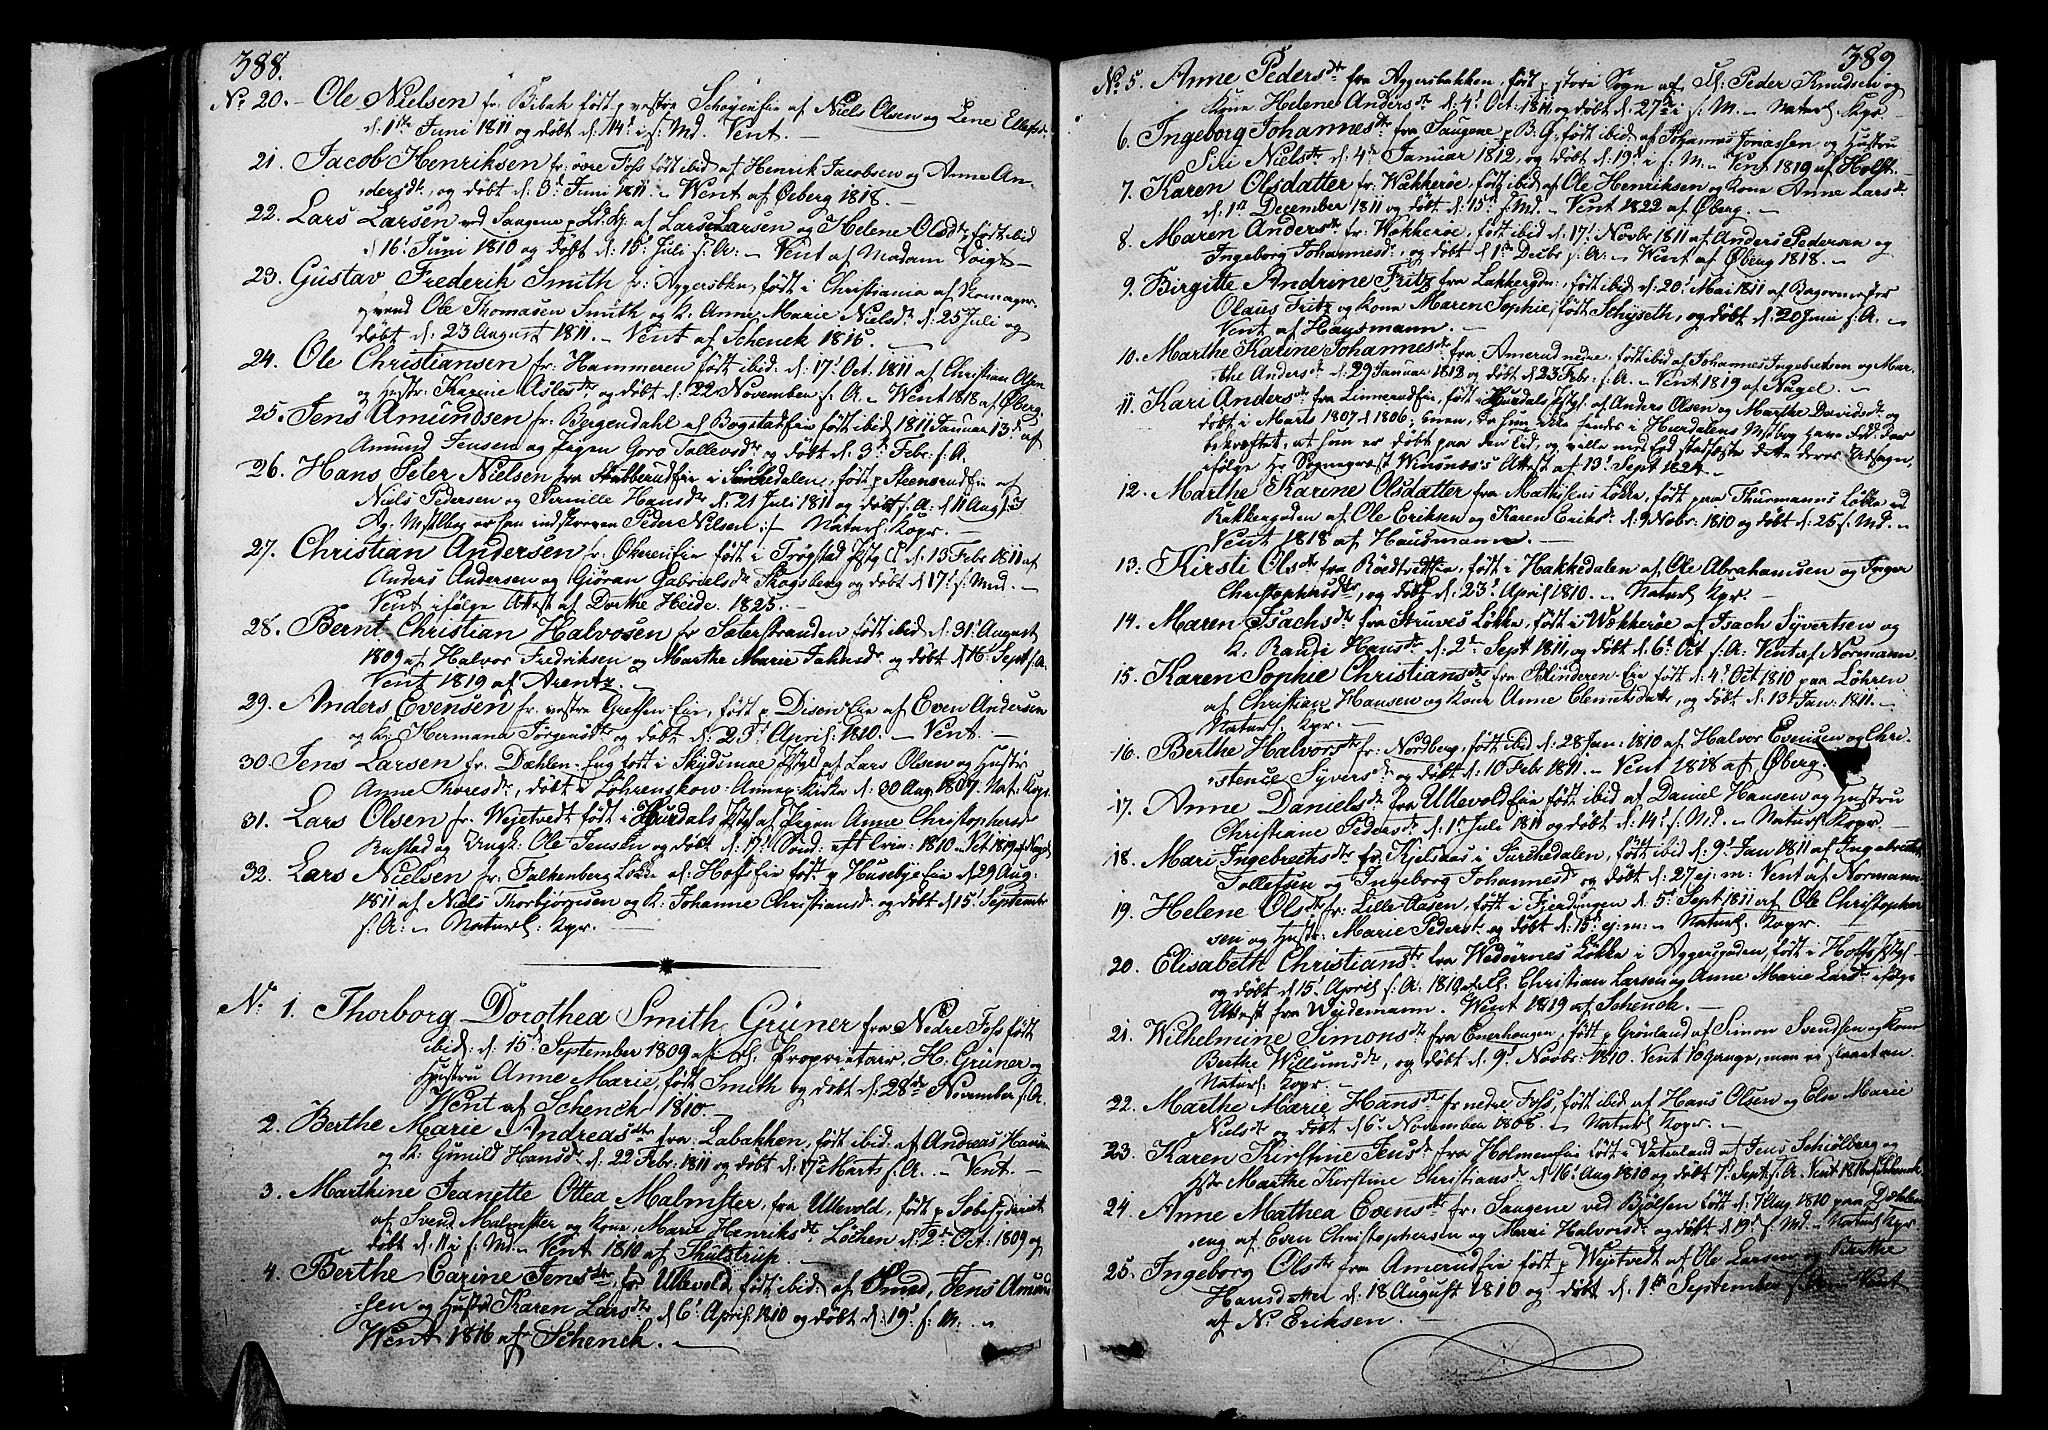 388.
No 20. - Ole Nielsen fr. født vestre af Niels Olsen og Lene
d. 1ste Juni 1811 og døbt d. 14d i s. Md. Vent. -
21. Jacob Henriksen fr. øvre Foss født ibid af Henrik Jacobsen og Anne An-
dersdr, og døbt d. 3d Juni 1811. - Vent af Øberg 1818. -
22. Lars Larsen ved Saugene p af Lars Larsen og Helene Olsdr født ibid
d 16d Juni 1810 og døbt d. 15d Juli s. A. - Vent af Madam Voigt -
23. Gustav Frederik Smith fr. født i Christiania af
Ole Thomasen Smith og K. Anne Marie Nielsdr d. 25 Juli og
døbt d. 23 August 1811. - Vent af Schenck 1816. -
24. Ole Christiansen fr. Hammeren født ibid. d. 17d Oct. 1811 af Christian Olsen
og Hustr. Karine Aslesdr og døbt d. 22 November s. A. - Vent 1818 af Øberg
25. Jens Amundsen fr. Bergendahl af født ibid 1811 Januar 13d af
Amund Jensen og Pigen Goro Tollevsdr og døbt d. 3d Febr. s. A.
26. Hans Peter Nielsen fra i Sørkedalen, født p af
Niels Pedersen og Pernille Hansdr d. 21 Juli 1811 og døbt s. A. d. 11 Aug.
er han indskreven Peder Nielsen - Naturl Kopr.
27. Christian Andersen fr. født i Trøgstad d. 13 Febr. 1811 af
Anders Andersen og Giøran Gabrielsdr Skogsberg og døbt d. 17d s. Md. -
Vent ifølge Attest af Dorthe Heide 1825. -
28. Bernt Christian Halvosen fr født ibid d. 31d August
1809 af Halvor Fredriksen og Marthe Marie og døbt d. 16d Sept s. A.
Vent 1819 af Arentz. -
29. Anders Evensen fr. vestre født p af Even Andersen
og K. Hermana Jørgensdr og døbt d. 23d April 1810. - Vent. -
30. Jens Larsen fr. Dæhlen-Eng født i af Lars Olsen og Hustr
Anne Thoresdr, døbt i Løhrenskow Annex Kirke d. 30 Aug. 1807. Nat. Kopr.
31. Lars Olsen fr. Wejetvedt født i Hurdals af Pigen Anne Christophersdr
Rustad og Ole Jensen og døbt d. 17d 1810
32. Lars Nielsen fr. Falkenberg Løkke af født p d. 29 Aug.
1811 af Niels Thorbjørnsen og K. Johanne Christiansdr og døbt d. 15d September
s. A. - Naturl. Kpr. -
No 1. Thorborg Dorothea Smith Grüner fra Nedre Foss født
ibid. d. 15d September 1809 af Proprietair H. Grüner og
Hustru Anne Marie, født Smith og døbt d. 28de November s. A.
Vent af Schenck 1810. -
2. Berthe Marie Andreasdtr fra Labakken, født ibid. af Andreas
og K. Gunild Hansdr d. 22 Febr. 1811 og døbt d. 17d Marts s. A. - Vent. -
3. Marthine Jeanette Ottea Malmster, fra Ullevold, født p
af Svend Malmster og Kone Marie Henriksdr Løchen d. 2d Oct. 1809 og
døbt d. 11 i s. Md. - Vent 1810 af Thulstrup.
4. Berthe Carine Jensdtr, fra Ullevold født ibid. af Smed, Jens Amund
sen og Hustr Karen Larsdtr d. 6d April 1810 og døbt d. 19d s. M. -
Vent 1816 af Schenck. -
389
No 5. Anne Pedersdtr fra Aggersbakken, født p store Sogn af Peder Knudsen og
Kone Helene Andersdtr d. 4d Oct. 1811 og døbt d. 27de i s. M. - Naturl Kpr -
6. Ingeborg Johannesdtr fra Saugene p B. G. født ibid af Johannes Jonassen og Hustru
Siri Nielsdtr d. 4d Januar 1812, og døbt d. 19d i s. M. - Vent 1819 af Holst -
7. Karen Olsdatter fr. Wækkerøe, født ibid af Ole Henriksen og Kone Anne Larsdtr
d. 1st December 1811 og døbt d. 15d s. Md. - Vent 1822 af Øberg. -
8. Maren Andersdtr fr. Wækkerøe, født ibid d. 17d Novbr 1811 af Anders Pedersen og
Ingeborg Johannesdr., og døbt d. 1ste Decbr s. A. - Vent af Øberg 1818. -
9. Birgitte Andrine Fritz fra født ibid d. 20d Mai 1811 af Bagermester
Olaus Fritz og Kone Maren Sophie født og døbt d. 20 Juni s. A. -
Vent af Hausmann. -
10. Marthe Karine Johannesdtr fra Amerud nedre, født ibid af Johannes Ingebretsen og Mar-
the Andersdtr d. 29 Januar 1812 og døbt d. 23 Febr. s. A. - Vent 1819 af Nagel. -
11. Kari Andersdtr fra Linnerudeie, født i Hurdals af Anders Olsen og Marthe Davidsdtr og
døbt i Marts 1807 1806; men, da hun ikke findes i Hurdalens
bekræftet, at hun er døbt paa den tid, og ville med Eed stadfæste dette deres Udsagn,
ifølge Hr Sognepræst Attest af 13d Sept 1824. -
12. Marthe Karine Olsdatter fra Mathisens Løkke, født paa Thurmanns Løkke ved
af Ole Eriksen og Karen Eriksdr d. 9 Nobr. 1810 og døbt d. 25 s. Md. -
Vent 1818 af Hausmann. -
13. Kirsti Olsdtr fra født i Hakkedalen af Ole Abrahamsen og Inger
Christophersdtr, og døbt d. 23d April 1810. - Naturl Kpr. -
14. Maren Isachsdtr fra Struves Løkke, født i Wækkerøe af Isach Syvertsen og
K. Randi Hansdtr d. 2d Sept 1811, og døbt d. 6d Oct s. A. Vent af Normann.
15. Karen Sophie Christiansdtr fra født d. 4d Oct 1810 paa Løhren
af Christian Hansen og Kone Anne Clemetsdatter, og døbt d. 13d Jan. 1811. -
Naturl. Kpr. -
16. Berthe Halvorsdtr fr. Nordberg, født ibid d. 28 Jan. 1810 af Halvor Evensen og Chri-
stence Syversdtr og døbt d. 10 Febr 1811. - Vent 1828 af Øberg. -
17. Anne Danielsdtr fra Ullevoldeie født ibid af Daniel Hansen og Hustru
Christiane Pedersdtr d. 1ste Juli 1811 og døbt d. 14d s. Md. - Naturl. Kopr. -
18. Mari Ingebrechtsdtr fr. Kjelsaas i Sørchedalen, født ibid d. 9d Jan 1811 af Ingebrecht
Tollefsen og Ingeborg Johannesdr og døbt d. 27 ej. m. Vent af Normann
19. Helene Olsdtr fr. Lille-Aasen, født i Fjerdingen d. 5d Sept 1811 af Ole Christopher
sen og Hustr. Marie Pedersdtr og døbt d. 15d ej. m. - Naturl. Kopr. -
20. Elisabeth Christiansdtr fra Løkke i født i
og døbt d. 15d April s. A. 1810 af Christian Larsen og Anne Marie Larsdtr ifølge
Attest fra Wejdemann. Vent 1819 af Schenck. -
21. Wilhelmine Simonsdtr fra Enerhaugen, født p Grønland af Simon Svendsen og Kone
Berthe Willumsdtr, og døbt d. 9d Novbr. 1810. Vent 10 gange, men ei slaaet an.
Naturl. Kopr. -
22. Marthe Marie Hansdtr fr nedre Foss, født ibid af Hans Olsen og Else Marie
Nielsdtr og døbt d. 6d November 1808. - Naturl Kopr. -
23. Karen Kirstine Jensdtr fra Holmeneie født i Vaterland af Jens Schiølberg og
Hstr Marthe Kirstine Christiansdr d. 16d Aug 1810 og døbt 7d Sept. s. A. Vent 1816 af Schenck.
24. Anne Mathea Evensdtr fr. Saugene ved Bjølsen født d. 7d Aug. 1810 paa Dæhlen
eng af Even Christophersen og Mari Halvorsdtr og døbt d. 19d s. Md. - Naturl Kpr.
25. Ingeborg Olsdtr fra Amerudeie født p Wejtvedt af Ole Larsen og Berthe
Hansdatter d. 18 August 1810 og døbt d. 1ste September Vent
af N. Eriksen. -